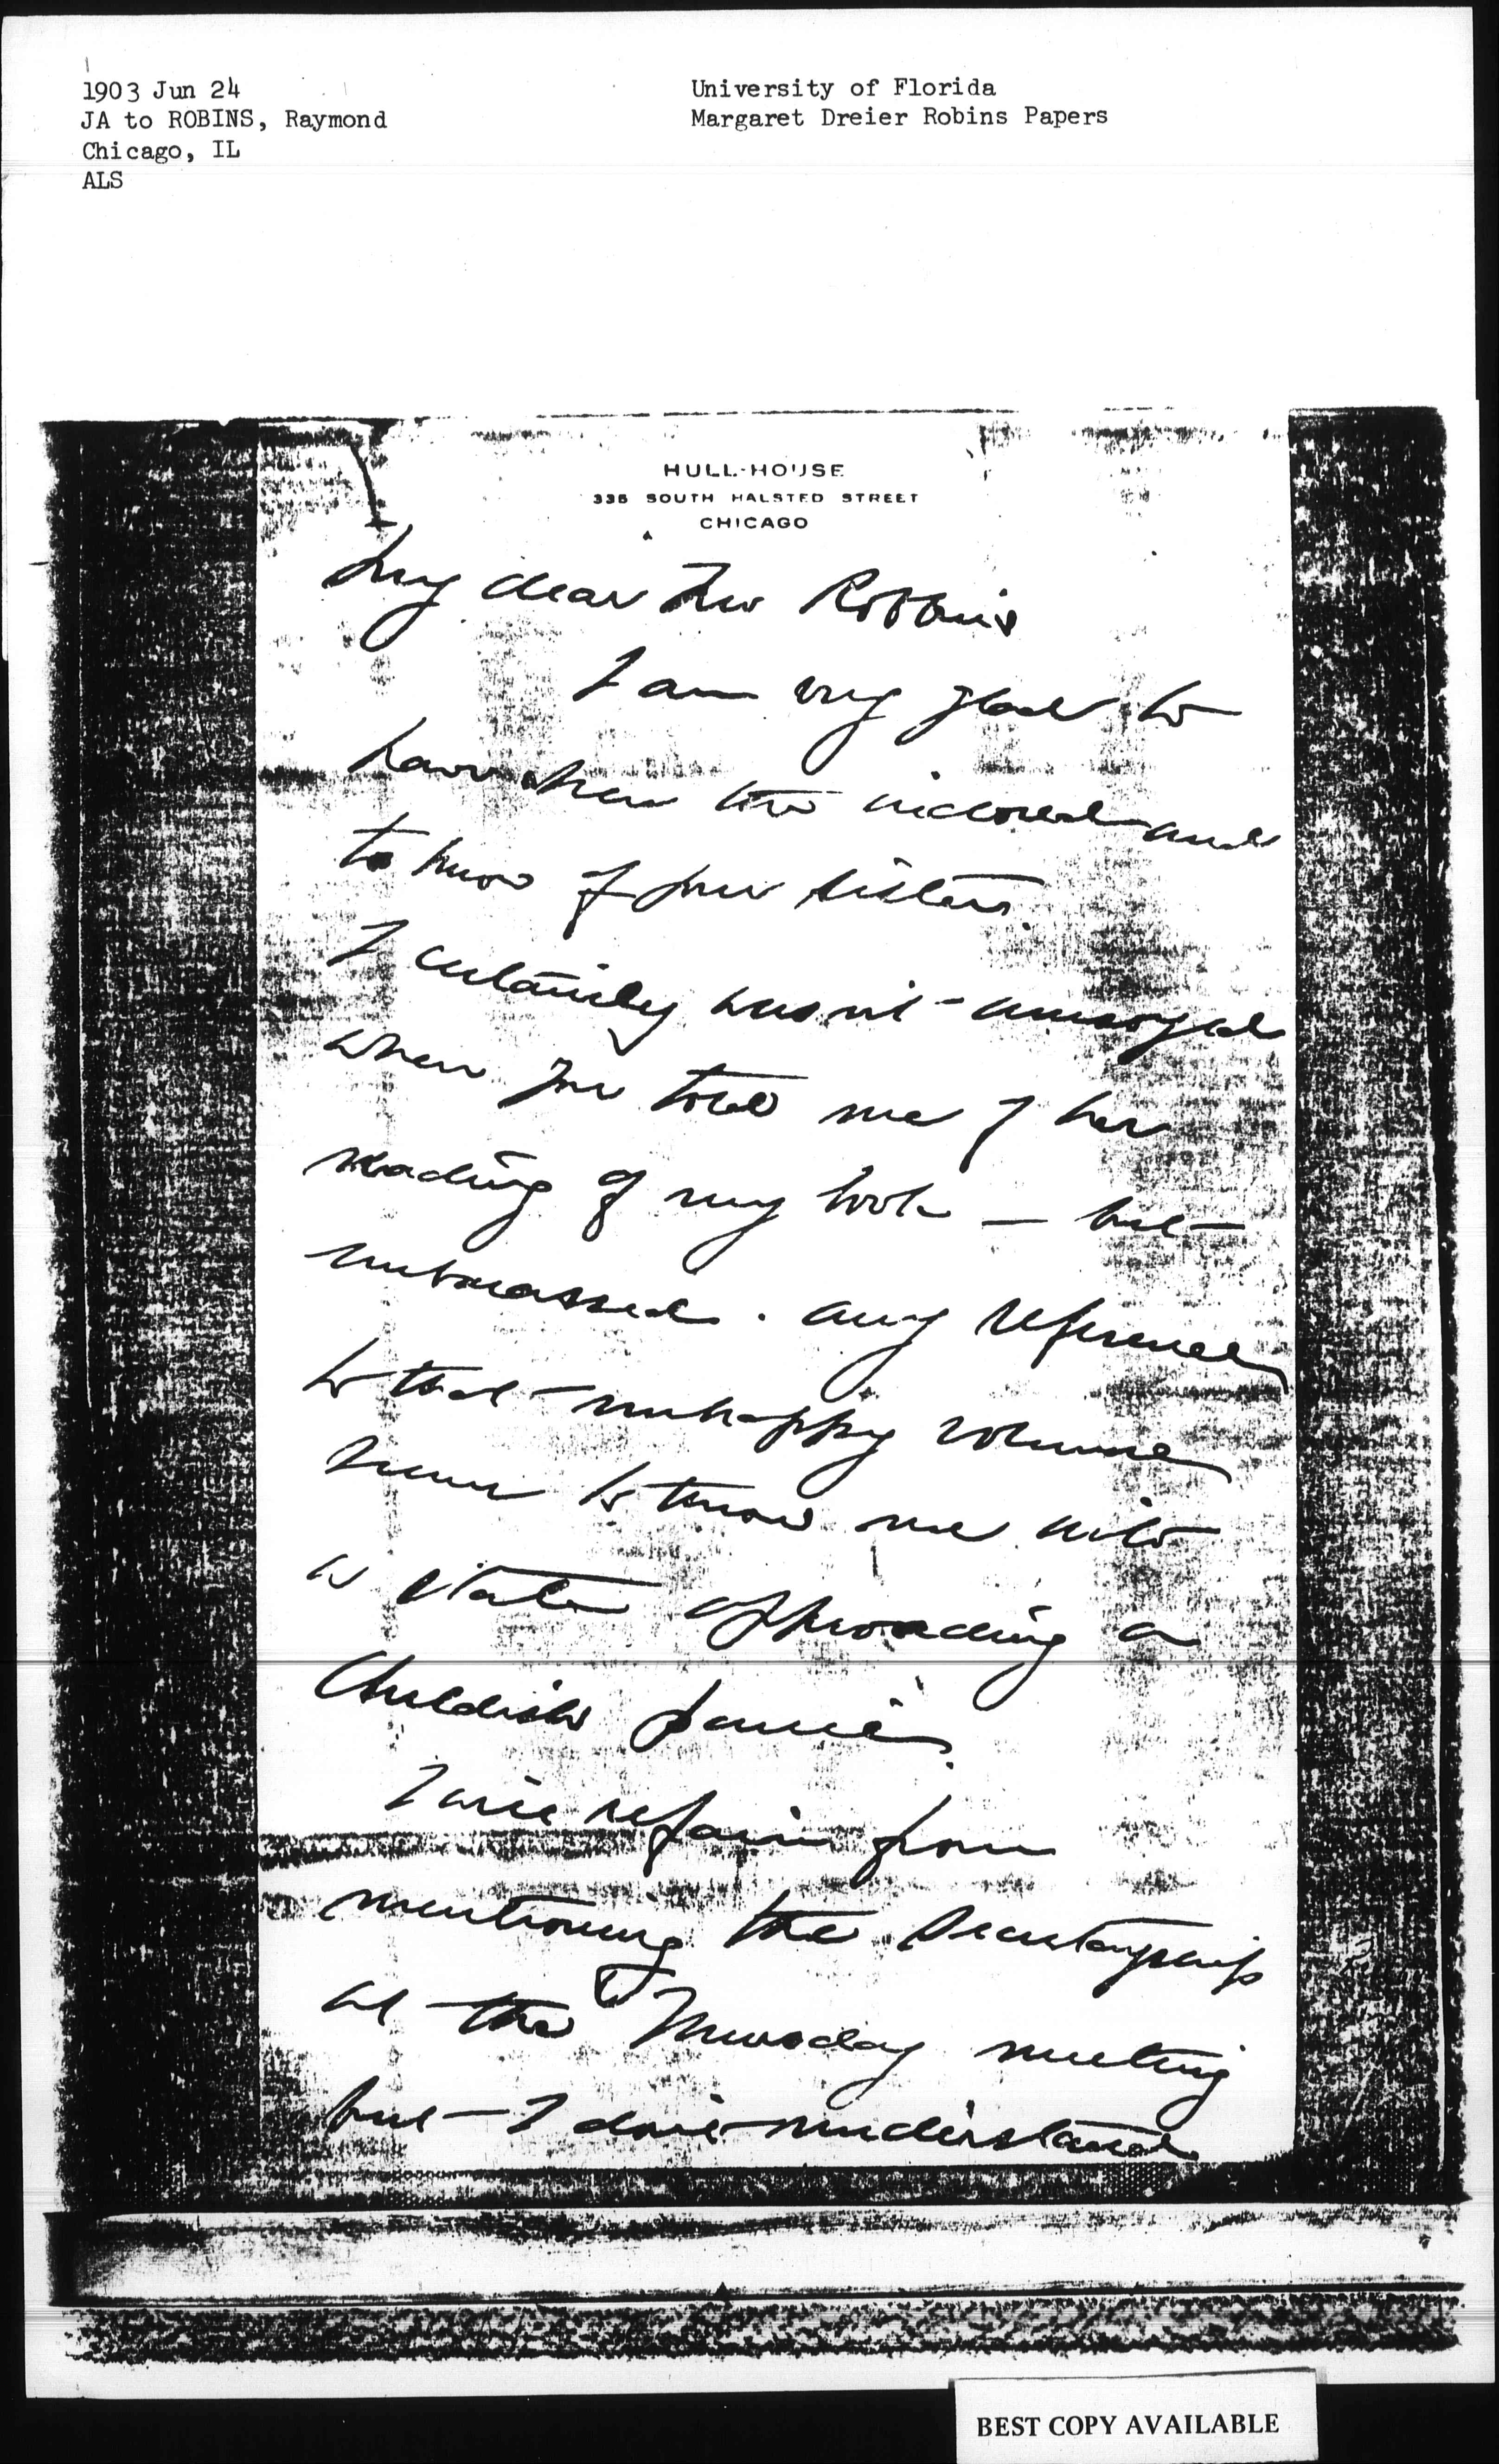 1903 Jun 24
JA to ROBINS, Raymond
Chicago, IL
ALS
University of Florida
Margaret Dreier Robins Papers
HULL-HOUSE
335 SOUTH HALSTED STREET
CHICAGO
My dear Mr Robbins
I am very glad to
have seen the inclosed and
to know of your sister.
I certainly wasn't annoyed
when you told me of her
reading of my book — but
embarassed. Any reference
to that unhappy volume
seems to throw me into
a state approaching a
childish panic.
I will refrain from
mentioning the Secretaryship
at the Thursday meeting
but I don't understand
BEST COPY AVAILABLE